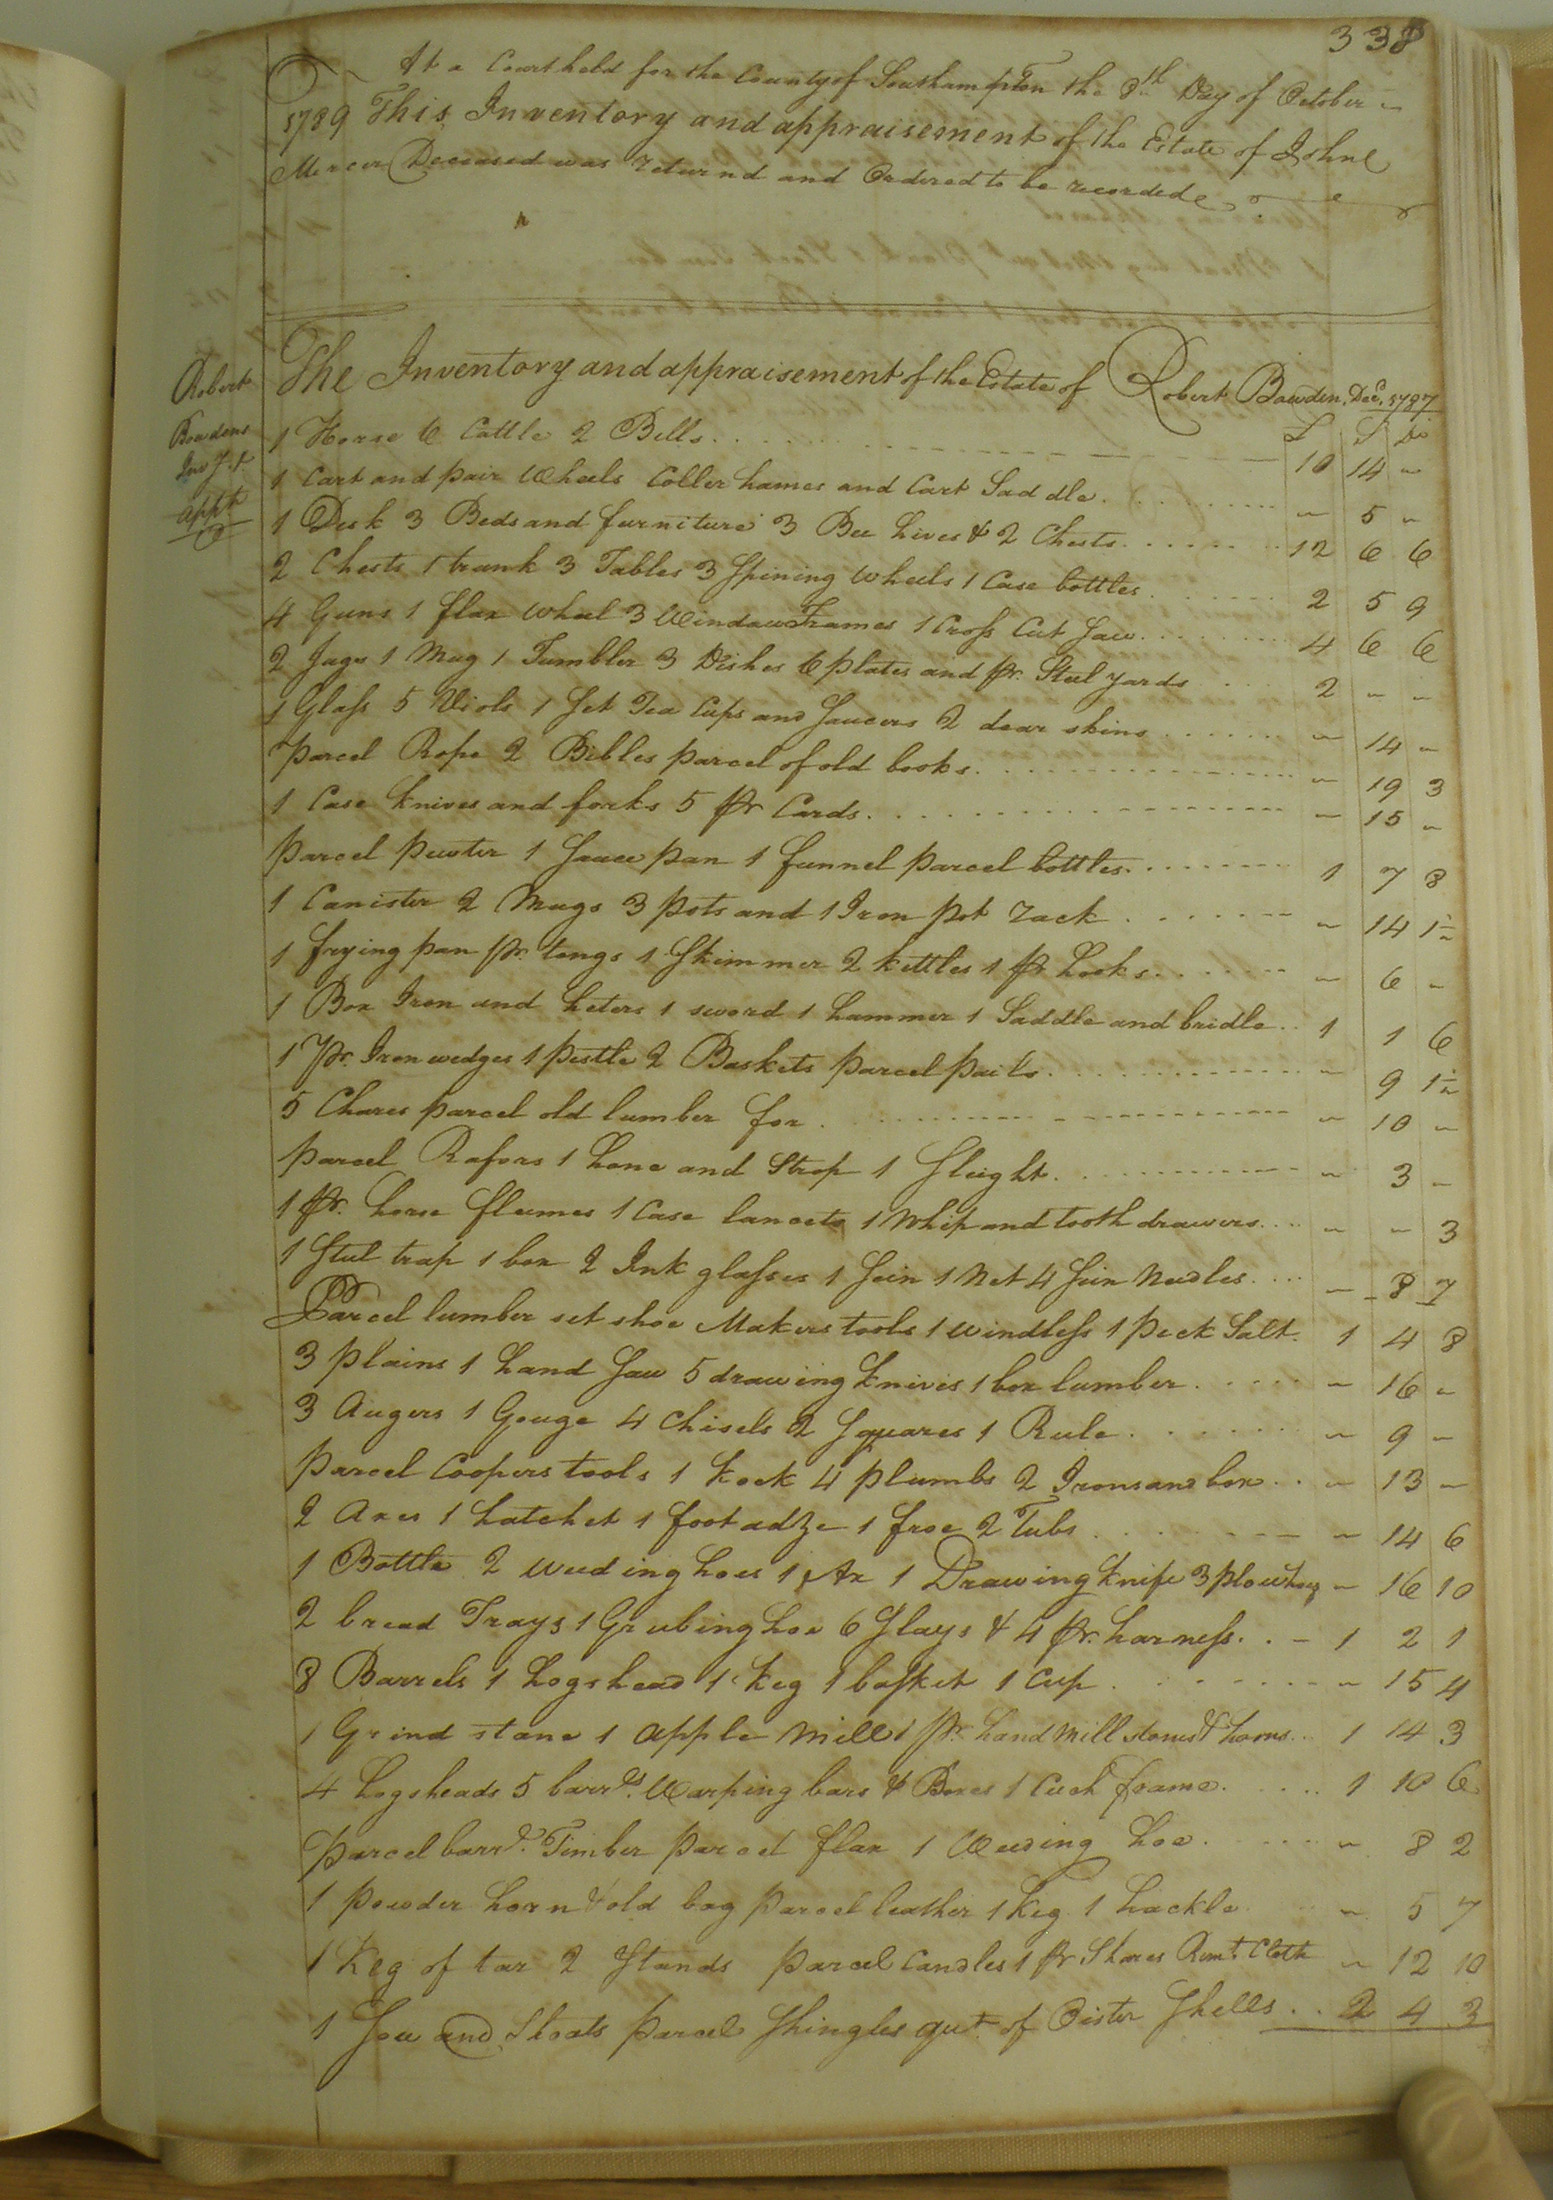 338
At a Court held for the County of Southampton the 8th Day of October
1789 This Inventory and appraisement of the Estate of John
Mercer Deceased was returnd and Ordered to be recorded
Robert
Bowdens
Inv.y &
appt
The Inventory and appraisement of the Estate of Robert Bowden, Dec. 1787
£ S D
1 Horse 6 Cattle 2 Bells 10 14 "
1 Cart and pair Wheels Coller hames and Cart Saddle " 5 "
1 Desk 3 Beds and furniture 3 Bee hives & 2 Chests 12 6 6
2 Chests 1 trunk 3 Tables 3 Spining Wheels 1 Case bottles 2 5 9
4 Guns 1 flax Wheel 3 Window Frames 1 Cross Cut Saw 4 6 6
2 Jugs 1 Mug 1 Tumbler 3 Dishes 6 plates and pr. Steel yards 2 " "
1 Glass 5 Viols 1 Set Tea Cups and Saucers 2 dear skins " 14 "
parcel Rope 2 Bibles parcel of old books " 19 3
1 Case knives and forks 5 pr Cards " 15 "
parcel pewter 1 Sauce pan 1 funnel parcel bottles 1 7 8
1 Canister 2 Mugs 3 pots and 1 Iron pot rack " 14 1½
1 frying pan pr. tongs 1 Skimmer 2 kettles 1 pr hooks " 6 "
1 Box Iron and heters 1 sword 1 hammer 1 Saddle and bridle 1 1 6
1 pr. Iron wedges 1 pestle 2 Baskets parcel pails " 9 1½
5 Chares parcel old lumber for " 10 "
parcel Rasors 1 hone and Strop 1 Sleight " 3 "
1 pr. horse fleumes 1 Case lancets 1 Whip and tooth drawers " " 3
1 Steel trap 1 box 2 Ink glasses 1 Sein 1 Net 4 Sein Needles " 8 7
Parcel lumber set shoe Makers tools 1 windless 1 peck Salt 1 4 8
3 plains 1 hand Saw 5 drawing knives 1 box lumber " 16 "
3 Augers 1 Gouge 4 Chisels 2 Squares 1 Rule " 9 "
parcel Coopers tools 1 kock 4 plumbs 2 Irons and box " 13 "
2 Axes 1 hatchet 1 foot adze 1 froe 2 Tubs " 14 6
1 Bottle 2 weeding hoes 1 Ax 1 Drawing knife 3 plow hoes " 16 10
2 bread Trays 1 Grubing hoe 6 Slays & 4 pr. harness 1 2 1
8 Barrels 1 hogshead 1 keg 1 basket 1 Cup " 15 4
1 Grind stone 1 apple Mill 1 pr. hand Mill stones & horns 1 14 3
4 hogsheads 5 barrls. Warping bars & Boxes 1 frame 1 10 6
parcel barrl. Timber parcel flax 1 Weeding hoe " 8 2
1 powder horn & old bag parcel leather 1 keg 1 hackle " 5 7
1 Keg of tar 2 Stands parcel Candles 1 pr Shares Remt. Cloth " 12 10
1 Sow and Shoats parcel Shingles qut. of Oister Shells 2 4 3